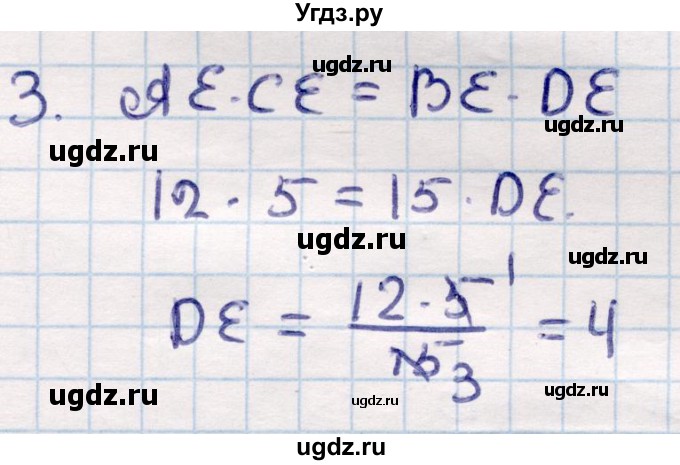 Угдз.ру
ugdz.ru
3. AE·CE = BE·DE
ugdz.ru
ugdz.ru
12 · 5 = 15 · DE.
ugdz.ru
ugdz.ru
DE = 12·5 1 / 15 3 = 4
ugdz.ru
ugdz.ru
ugdz.ru
ugdz.ru